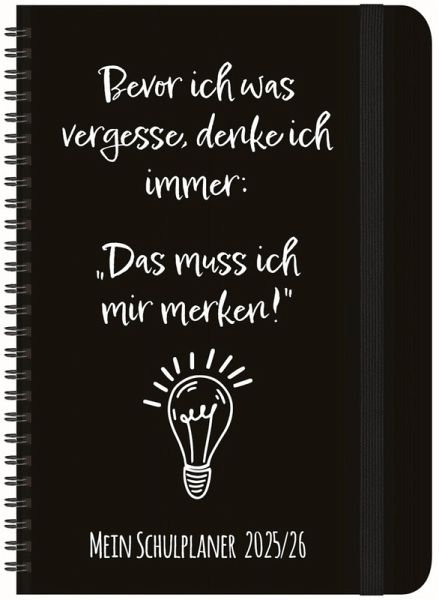 Bevor ich was
vergesse, denke ich
immer:
„Das muss ich
mir merken!"
MEIN SCHULPLANER 2025/26